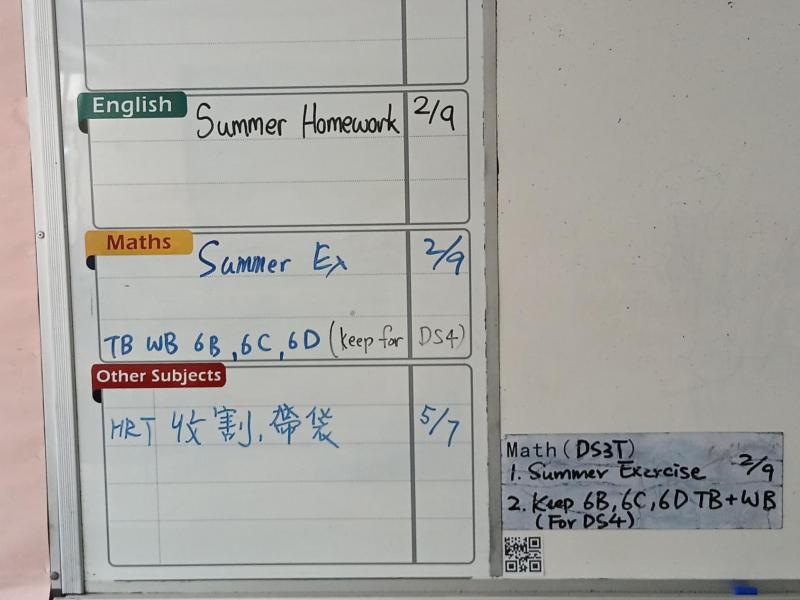 English
Summer Homework 2/9
Maths
Summer Ex 2/9
TB WB 6B, 6C, 6D (keep for DS4)
Other Subjects
HRT 收割, 帶袋 5/7
Math (DS3T)
1. Summer Exercise 2/9
2. Keep 6B, 6C, 6D TB + WB
(For DS4)